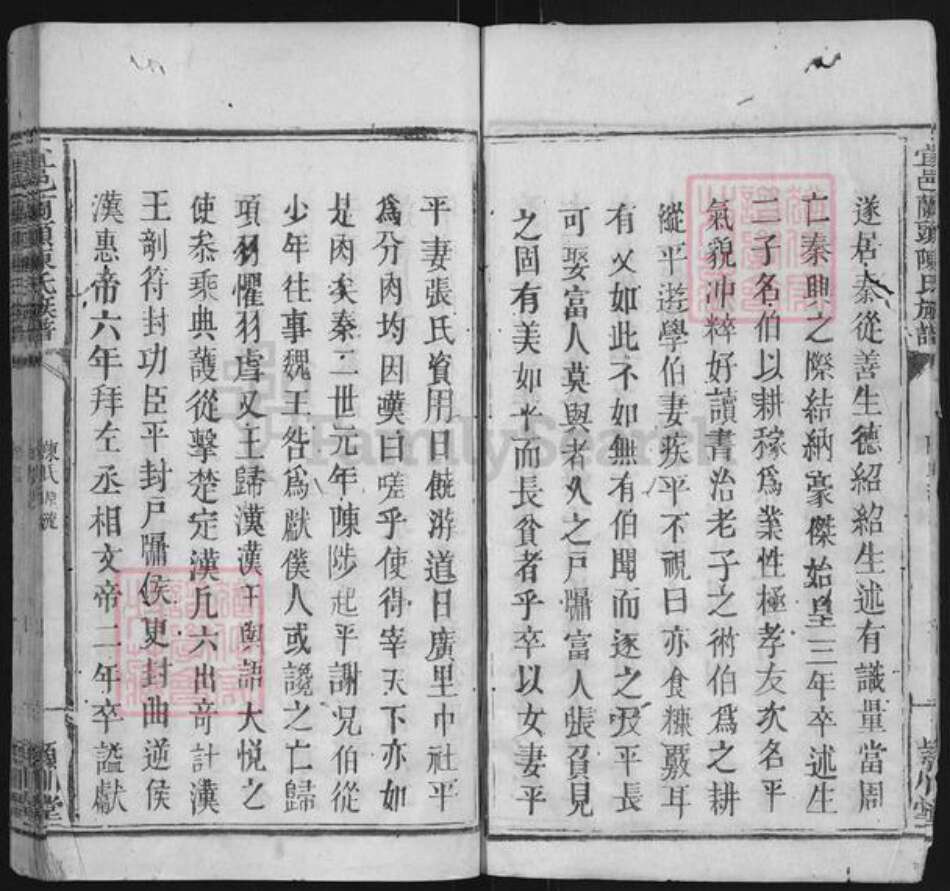 宜邑蘭頭陳氏族譜
遂居秦從善生德紹紹生述有識量當周
亡秦興之際結納豪傑始皇三年卒述生
二子名伯以耕稼爲業性極孝友次名平
氣貌沖粹好讀書治老子之術伯爲之耕
縱平遊學伯妻疾平不視曰亦食糠覈耳
有叔如此不如無有伯聞而逐之及平長
可娶富人莫與者久之戶牖富人張負見
之固有美如平而長貧者乎卒以女妻平
平妻張氏資用日饒游道日廣里中社平
爲分肉均因嘆曰嗟乎使得宰天下亦如
是肉矣秦二世元年陳涉起平謝兄伯從
少年往事魏王咎爲獻僕人或讒之亡歸
項羽懼羽虐又王歸漢漢王與語大悅之
使叅乘典護從擊楚定漢凡六出奇計漢
王剖符封功臣平封戶牖侯更封曲逆侯
漢惠帝六年拜左丞相文帝二年卒諡獻
宜邑蘭頭陳氏族譜
陳氏源流
潁川堂
FamilySearch